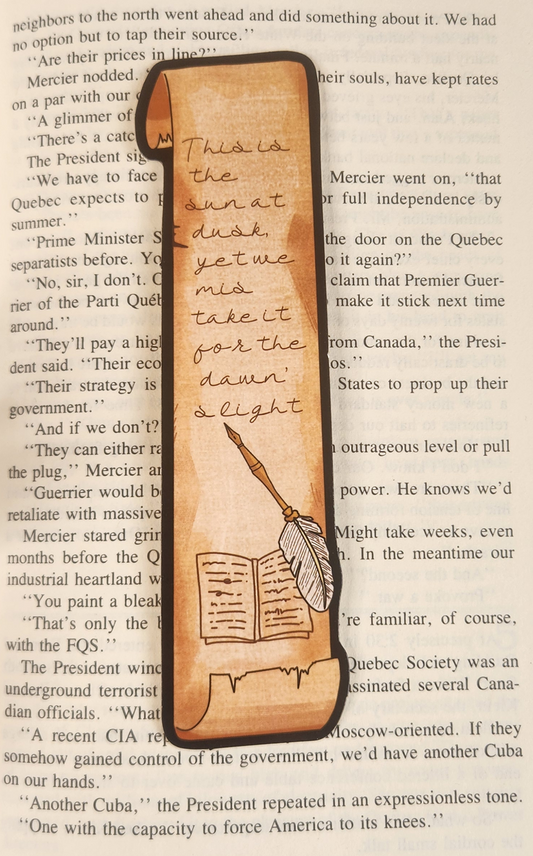 neighbors to the north went ahead and did something about it. We had
no option but to tap their source.''
''Are their prices in line?''
Mercier nodded. heir souls, have kept rates
on a par with our
''A glimmer of
''There's a catc
The President sig
''We have to face Mercier went on, ''that
Quebec expects to p or full independence by
summer.''
''Prime Minister S the door on the Quebec
separatists before. Yo o it again?''
''No, sir, I don't. C claim that Premier Guer-
rier of the Parti Québ make it stick next time
around.''
''They'll pay a hig from Canada,'' the Presi-
dent said. ''Their eco os.''
''Their strategy is States to prop up their
government.''
''And if we don't?
''They can either ra outrageous level or pull
the plug,'' Mercier an
''Guerrier would b power. He knows we'd
retaliate with massive
Mercier stared grin Might take weeks, even
months before the Q h. In the meantime our
industrial heartland w
''You paint a bleak
''That's only the b 're familiar, of course,
with the FQS.''
The President winc Quebec Society was an
underground terrorist assinated several Cana-
dian officials. ''What
''A recent CIA rep Moscow-oriented. If they
somehow gained control of the government, we'd have another Cuba
on our hands.''
''Another Cuba,'' the President repeated in an expressionless tone.
''One with the capacity to force America to its knees.''
This is
the
sun at
dusk,
yet we
mis
take it
for the
dawn'
s light